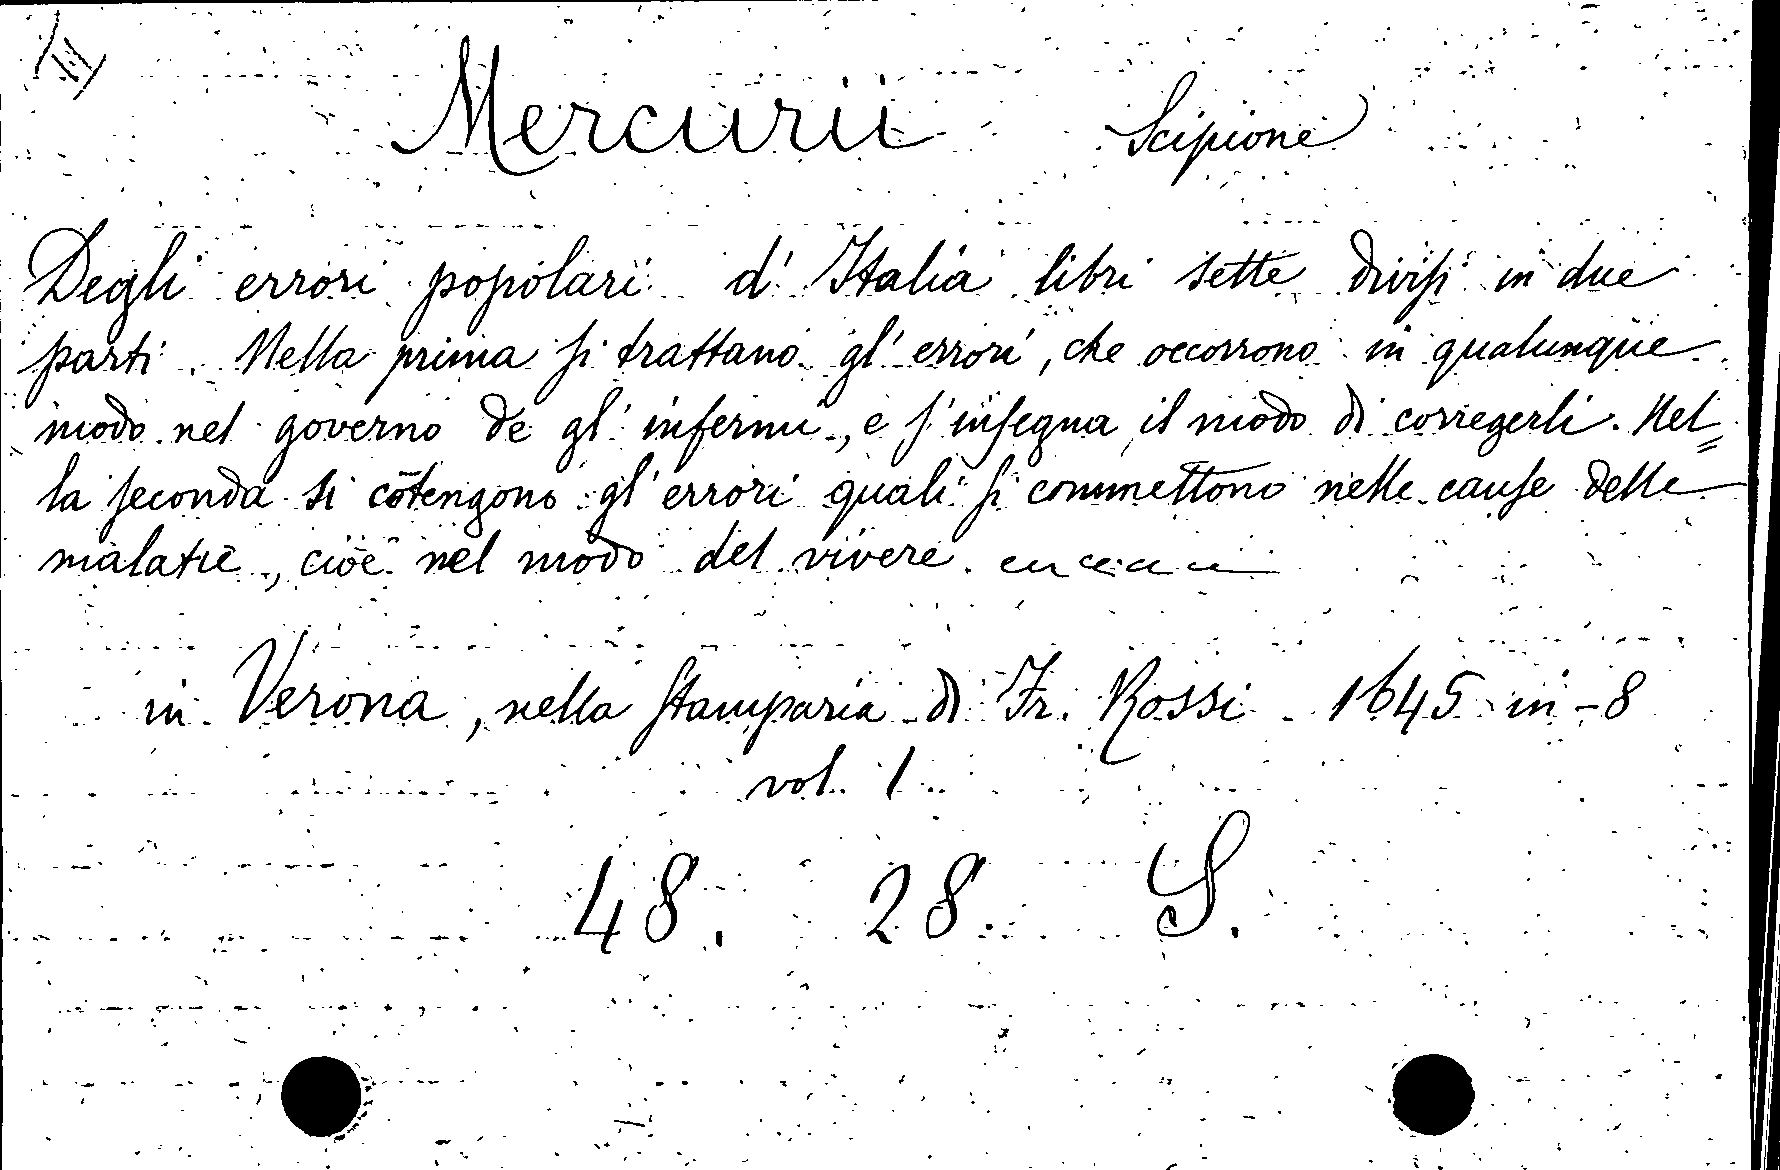 Mercurii Scipione
Degli errori popolari d'Italia libri sette divisi in due
parti. Nella prima si trattano gl'errori, che occorrono in qualunque
modo nel governo de gl'infermi, e s'insegna il modo di corregerli. Nel=
la seconda si cōtengono gl'errori quali si commettono nelle cause delle
malatie, cioè nel modo del vivere.
in Verona, nella stamparia di Fr. Rossi 1645 in-8
vol. 1
48. 28. S.